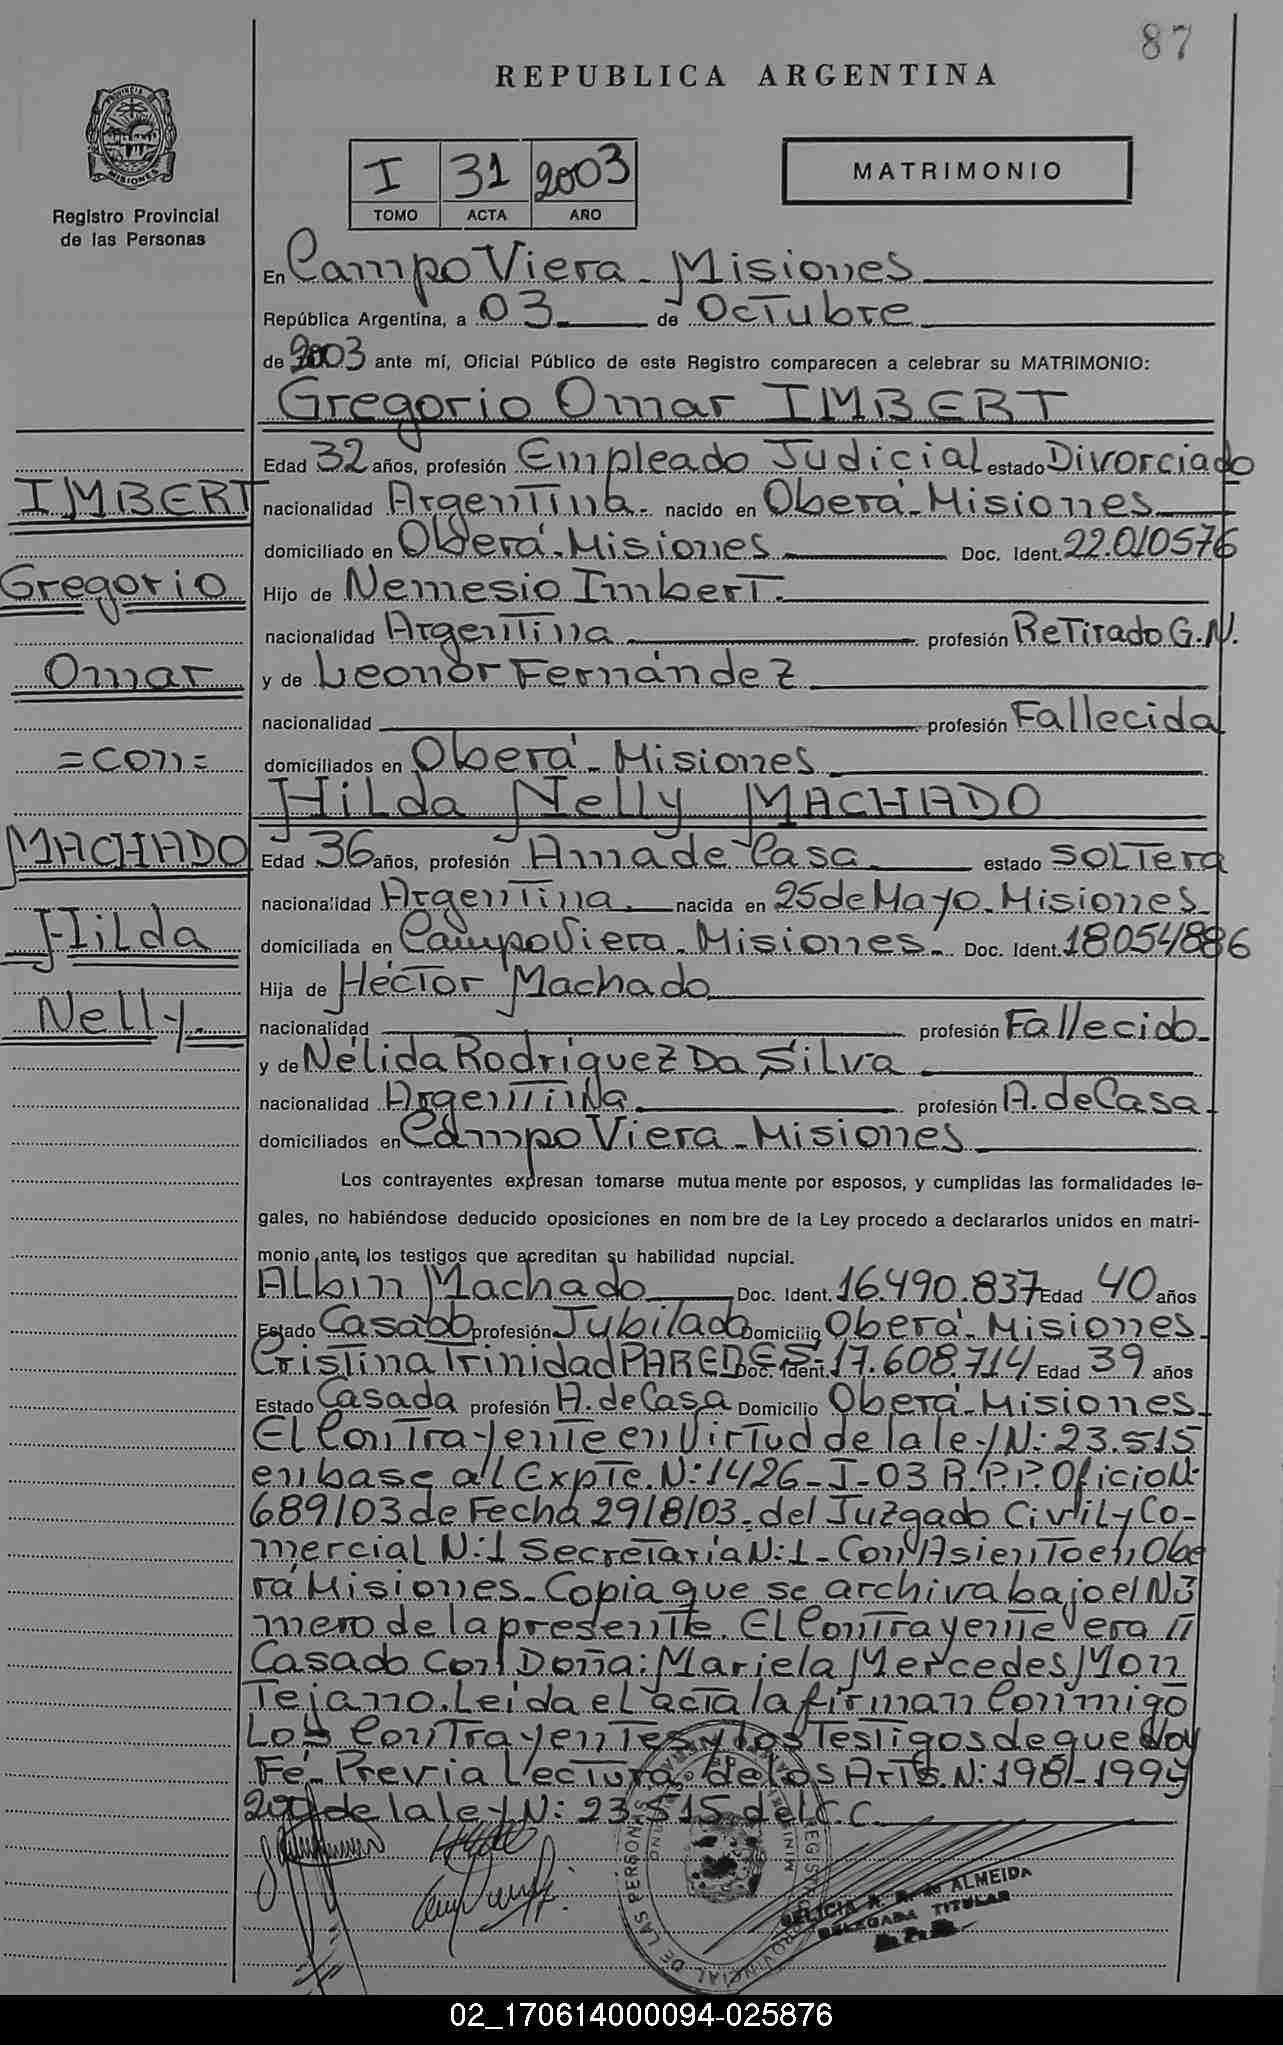 87
REPUBLICA ARGENTINA
PROVINCIA DE
MISIONES
Registro Provincial
de las Personas
I 31 2003
TOMO ACTA AÑO
MATRIMONIO
En Campo Viera - Misiones
República Argentina, a 03 de Octubre
de 2003 ante mí, Oficial Público de este Registro comparecen a celebrar su MATRIMONIO:
Gregorio Omar IMBERT
Edad 32 años, profesión Empleado Judicial estado Divorciado
IMBERT
nacionalidad Argentina. nacido en Oberá - Misiones
domiciliado en Oberá - Misiones Doc. Ident. 22.010576
Gregorio
Hijo de Nemesio Imbert.
nacionalidad Argentina profesión Retirado G.N.
Omar
y de Leonor Fernández
nacionalidad profesión Fallecida
=con=
domiciliados en Oberá - Misiones
Hilda Nelly MACHADO
MACHADO
Edad 36 años, profesión Ama de Casa estado SOLTera
nacionalidad Argentina. nacida en 25 de Mayo - Misiones
Hilda
domiciliada en Campo Viera - Misiones - Doc. Ident. 18054886
Hija de Héctor Machado
Nelly.
nacionalidad profesión Fallecido
y de Nélida Rodríguez Da Silva
nacionalidad Argentina profesión A. de Casa
domiciliados en Campo Viera - Misiones
Los contrayentes expresan tomarse mutua mente por esposos, y cumplidas las formalidades le-
gales, no habiéndose deducido oposiciones en nom bre de la Ley procedo a declararlos unidos en matri-
monio ante, los testigos que acreditan su habilidad nupcial.
Albin Machado Doc. Ident. 16.490.837 Edad 40 años
Estado Casado profesión Jubilado Domicilio Oberá - Misiones
Cristina Trinidad PAREDES - Doc. Ident. 17.608.714 Edad 39 años
Estado Casada profesión A. de Casa Domicilio Oberá - Misiones
El Contrayente en Virtud de la ley N: 23.515
en base al Expte. N: 1426 - I - 03 R.P.P. Oficio N:
689/03 de Fecha 29/8/03. del Juzgado Civil y Co-
mercial N: 1 Secretaría N: 1 - Con Asiento en Obe
rá Misiones - Copia que se archiva bajo el Nú
mero de la presente. El Contrayente era
Casado Con Doña: Mariela Mercedes Mon
Tejano. Leída el acta la firman Conmigo
Los Contrayentes y los Testigos de que doy
Fé - Previa Lectura de los Arts. N: 198 - 199 y
200 de la ley N: 23.515 del C.C.
REGISTRO PROVINCIAL DE LAS PERSONAS
A. R. de ALMEIDA
DELEGADA TITULAR
02_170614000094-025876